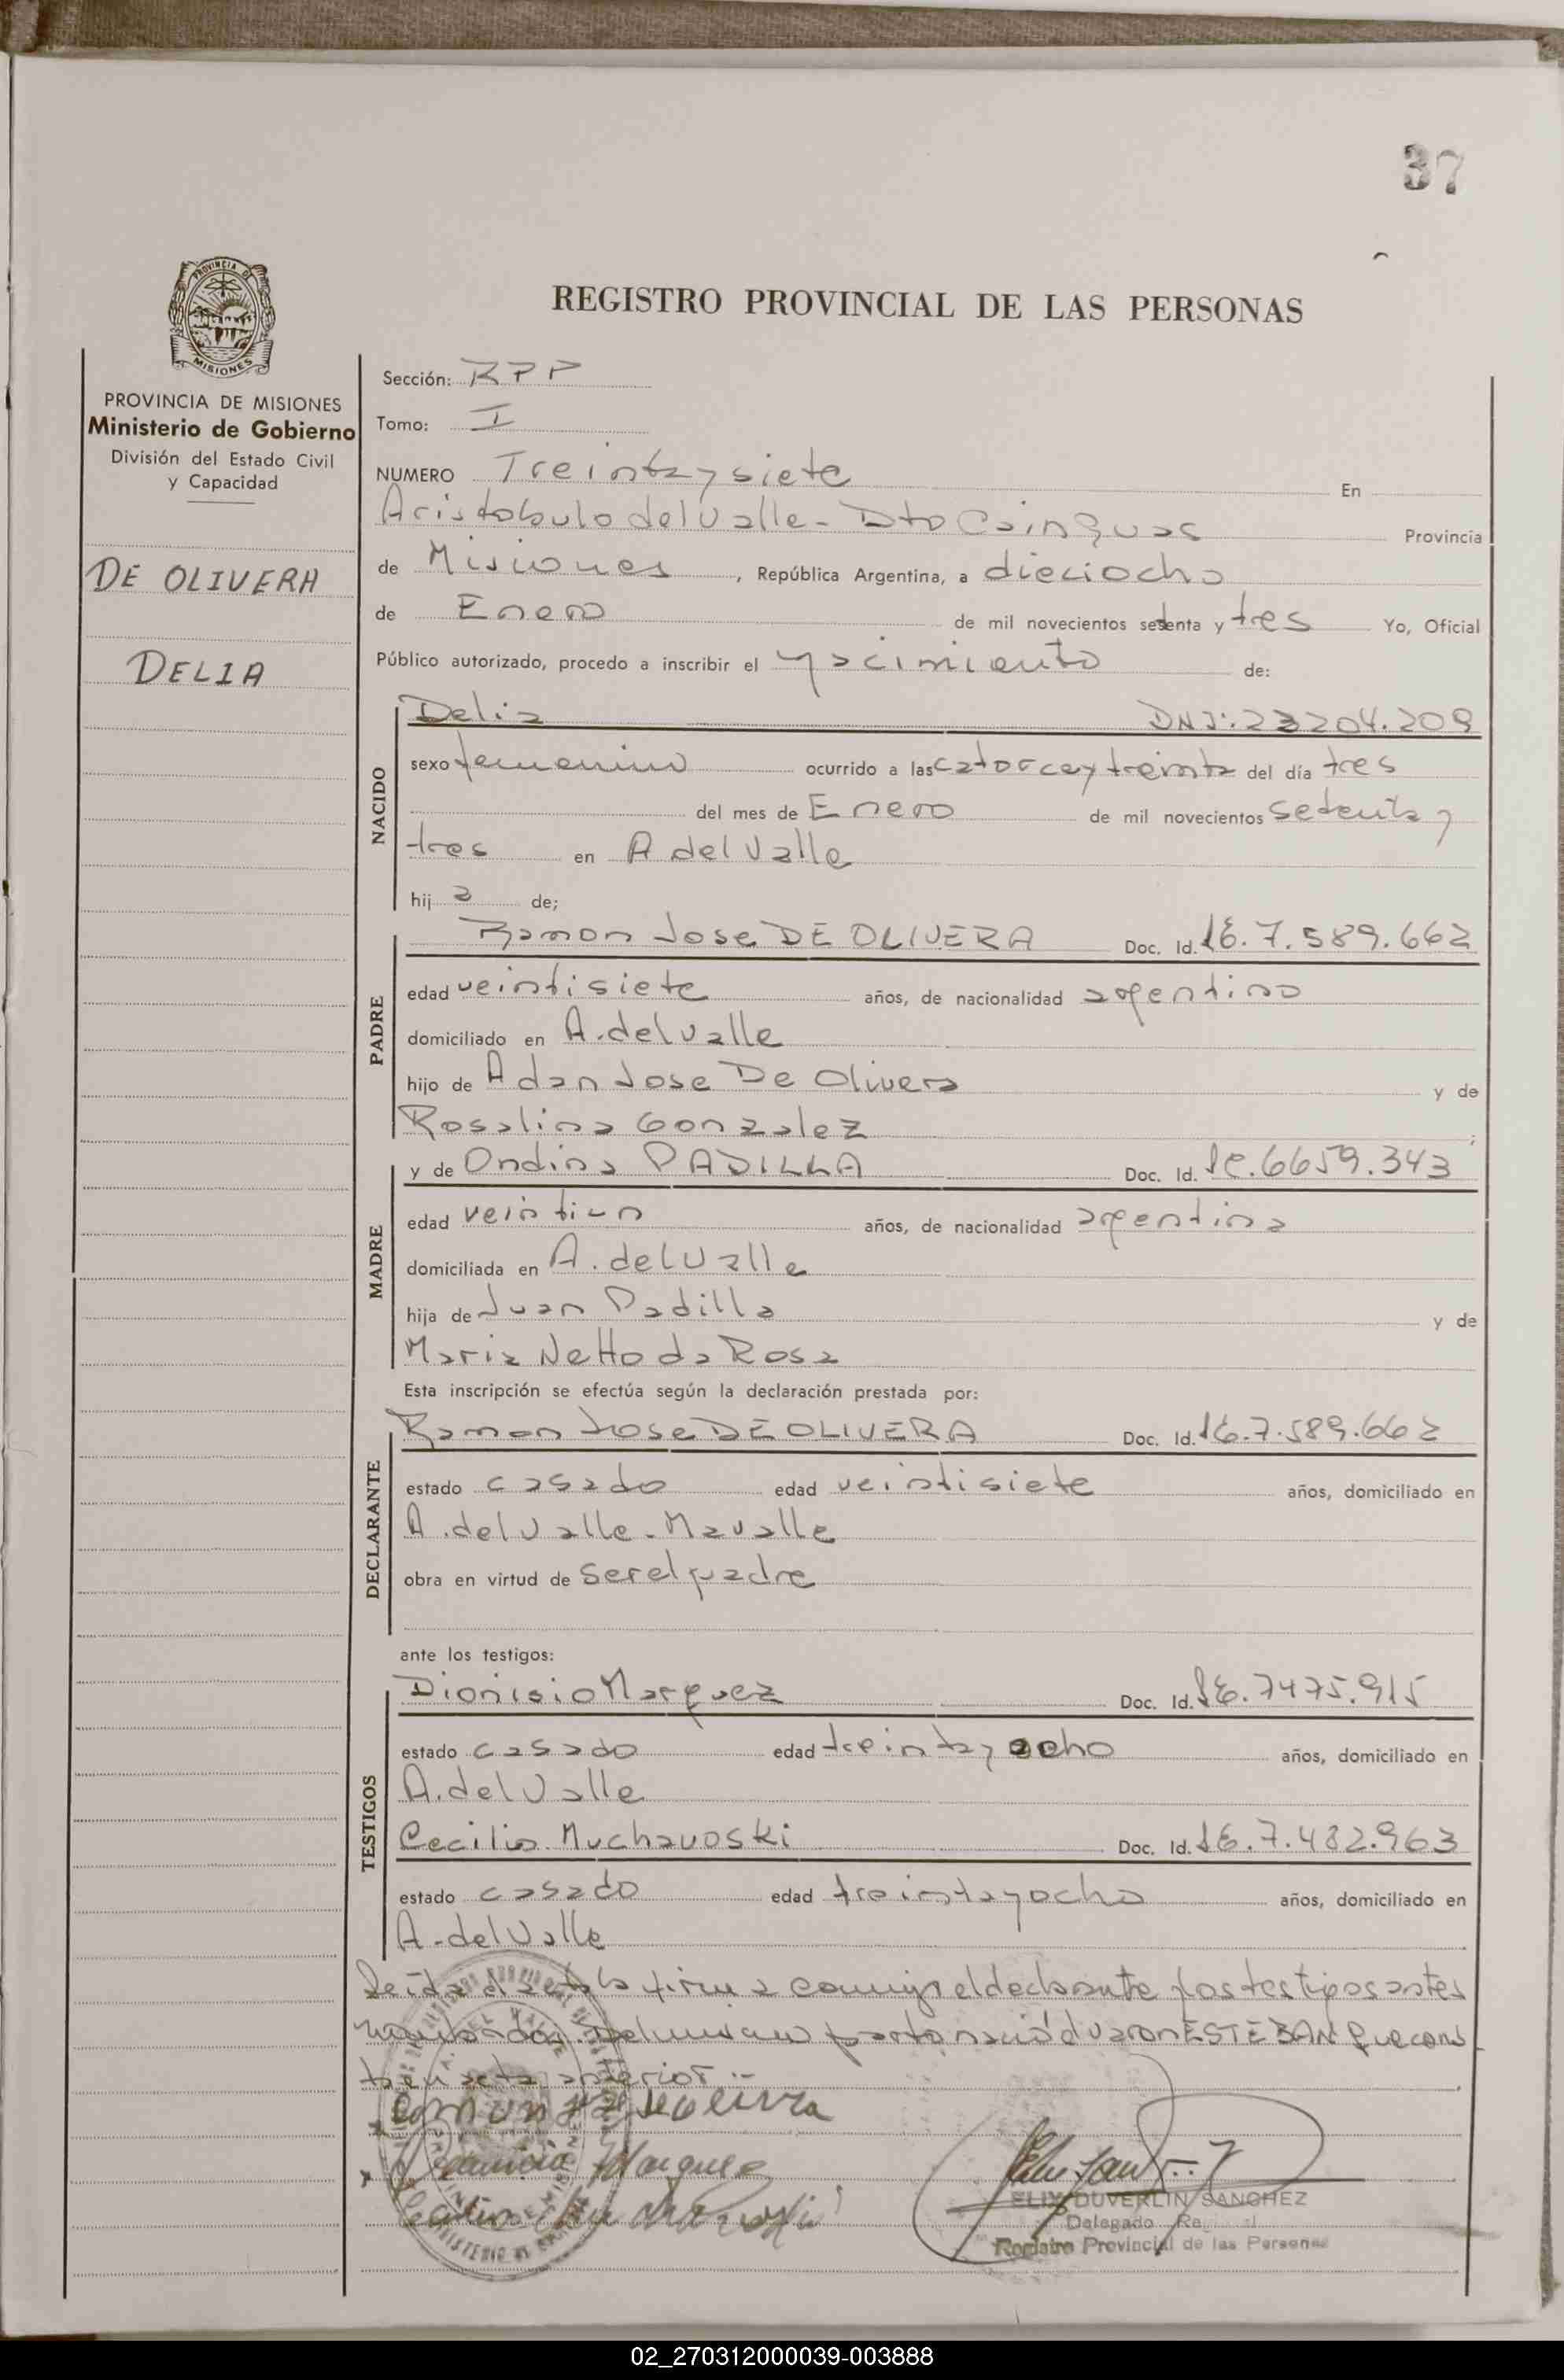 37
PROVINCIA DE MISIONES
REGISTRO PROVINCIAL DE LAS PERSONAS
PROVINCIA DE MISIONES
Ministerio de Gobierno
División del Estado Civil
y Capacidad
DE OLIVERA
DELIA
Sección: RPP
Tomo: I
NUMERO Treinta y siete En
Aristobulo del Valle - Dto Cainguas Provincia
de Misiones, República Argentina, a dieciocho
de Enero de mil novecientos setenta y tres Yo, Oficial
Público autorizado, procedo a inscribir el nacimiento de:
NACIDO
Delia DNI: 23204.209
sexo femenino ocurrido a las catorce y treinta del día tres
del mes de Enero de mil novecientos setenta y
tres en A del Valle
hija de;
PADRE
Ramon Jose DE OLIVERA Doc. Id. LE. 7.589.662
edad veintisiete años, de nacionalidad argentino
domiciliado en A. del Valle
hijo de Adan Jose De Olivera y de
Rosalina Gonzalez ;
MADRE
y de Ondina PADILLA Doc. Id. Lc. 6659.343
edad veintiun años, de nacionalidad argentina
domiciliada en A. del Valle
hija de Juan Padilla y de
Maria Netto da Rosa
Esta inscripción se efectúa según la declaración prestada por:
DECLARANTE
Ramon Jose DE OLIVERA Doc. Id. LE. 7.589.662
estado casado edad veintisiete años, domiciliado en
A. del Valle - Mavalle
obra en virtud de ser el padre
ante los testigos:
TESTIGOS
Dionisio Marquez Doc. Id. LE. 7475.915
estado casado edad treinta y ocho años, domiciliado en
A. del Valle
Cecilio Muchavoski Doc. Id. LE. 7.482.963
estado casado edad treinta y ocho años, domiciliado en
A. del Valle
Leida el acta la firma conmigo el declarante y los testigos antes
nombrados. Del mismo parto nació el varon ESTEBAN que cons
ta en acta anterior.-
ELIX DUVERLIN SANCHEZ
Delegado
Registro Provincial de las Personas
02_270312000039-003888